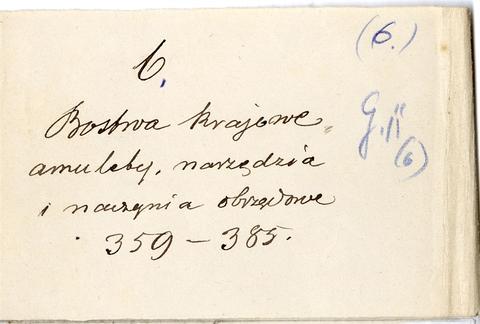 (6.)
6,
G. II
(6)
Bostwa krajowe,
amulety, narzędzia
i naczynia obrzędowe
359 – 385.